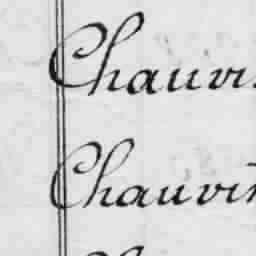 Chauvi
Chauvin